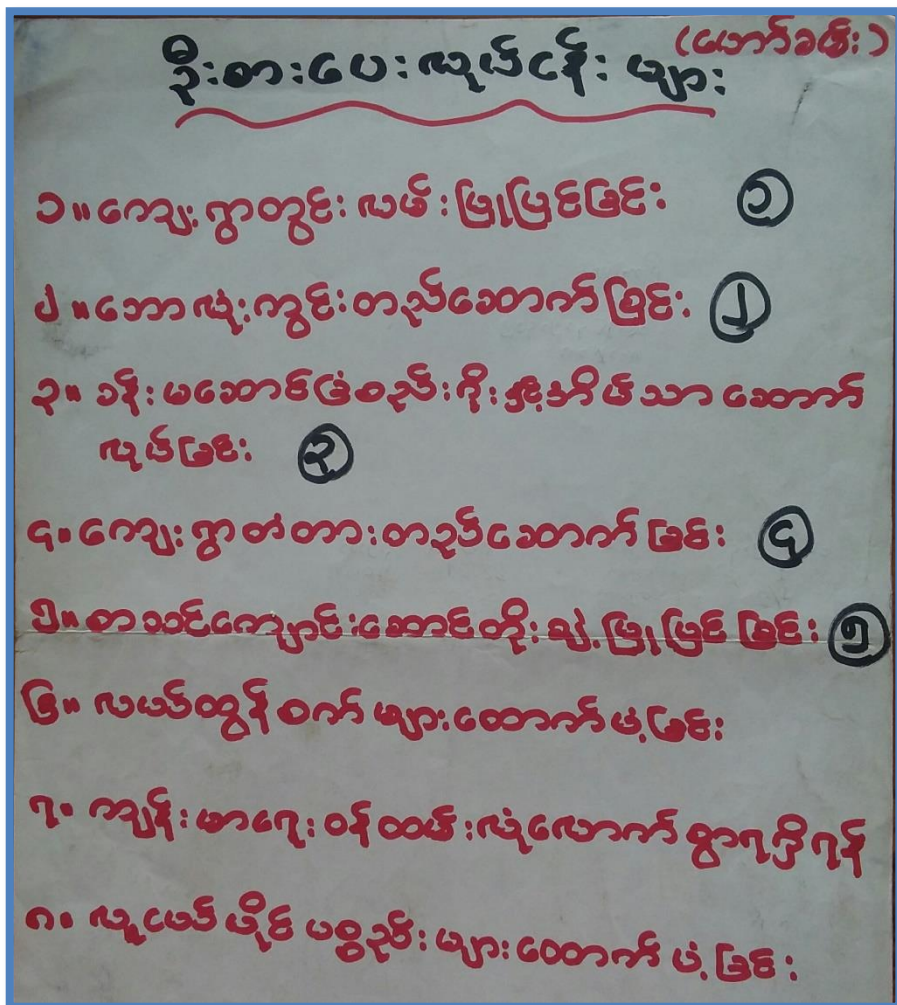 (ယော်ခမ်း)
ဦးစားပေးလုပ်ငန်းများ
၁။ ကျေးရွာတွင်း လမ်းပြုပြင်ခြင်း ①
၂။ ဘောလုံးကွင်းတည်ဆောက်ခြင်း ②
၃။ ခန်းမဆောင်ခြံစည်းရိုးနှင့်အိမ်သာဆောက်
လုပ်ခြင်း ③
၄။ ကျေးရွာတံတားတည်ဆောက်ခြင်း ④
၅။ စာသင်ကျောင်းဆောင်တိုးချဲ့ပြုပြင်ခြင်း ⑤
၆။ လယ်ထွန်စက်များထောက်ပံ့ခြင်း
၇။ ကျန်းမာရေးဝန်ထမ်းလုံလောက်စွာရရှိရန်
၈။ လူမှုပိုင်ပစ္စည်းများထောက်ပံ့ခြင်း